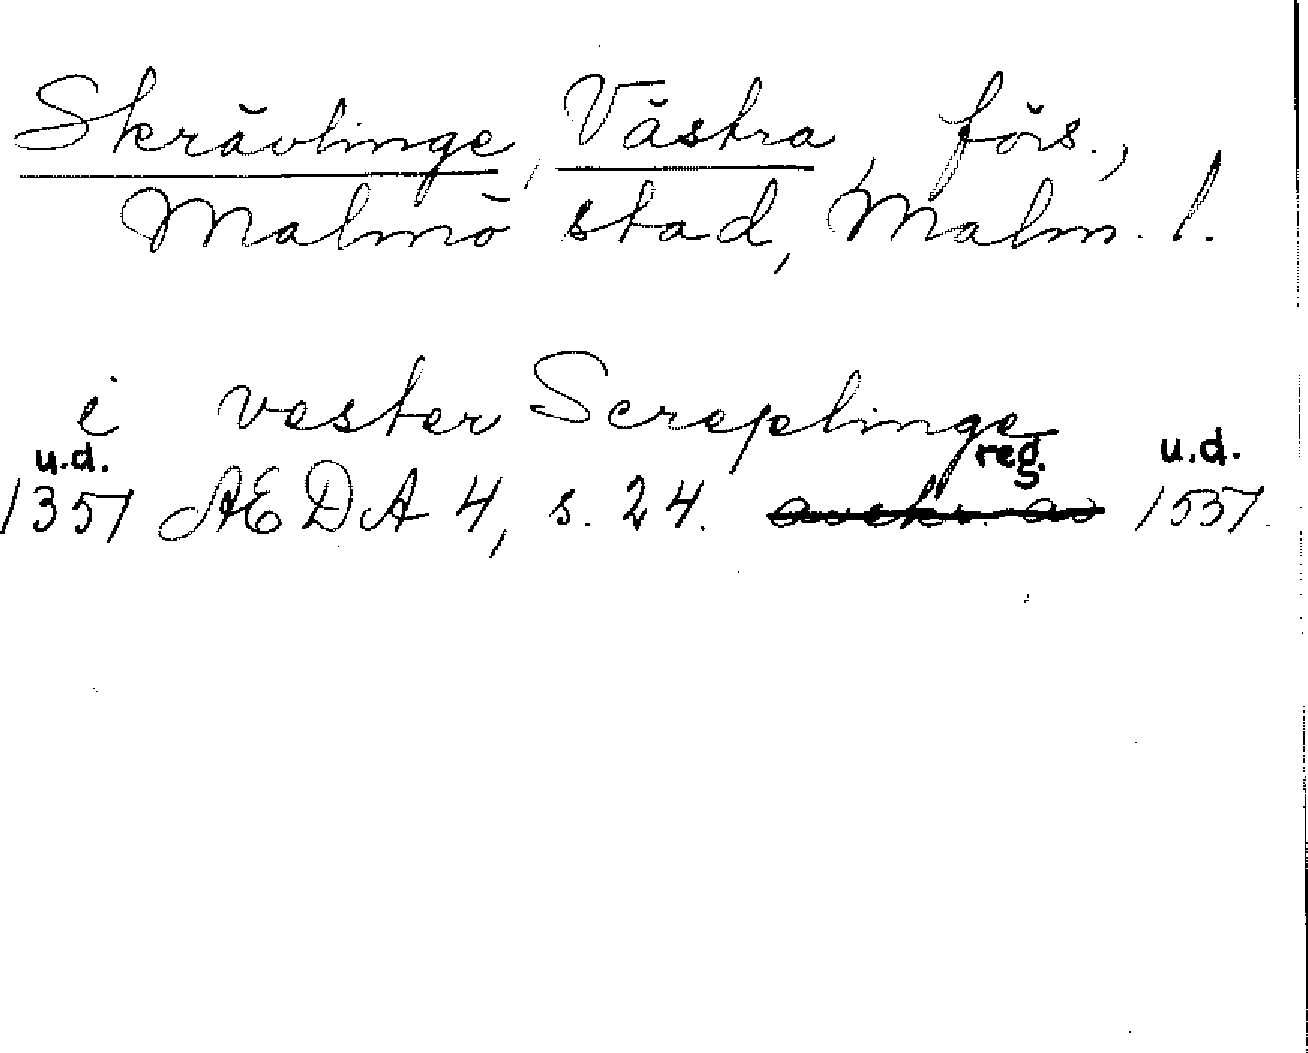 Skrävlinge, Västra, förs.,
Malmö stad, Malm. l.
i vester Screplinge
u.d. reg. u.d.
1357 ÆDA 4, s. 24. avskr. av 1537.